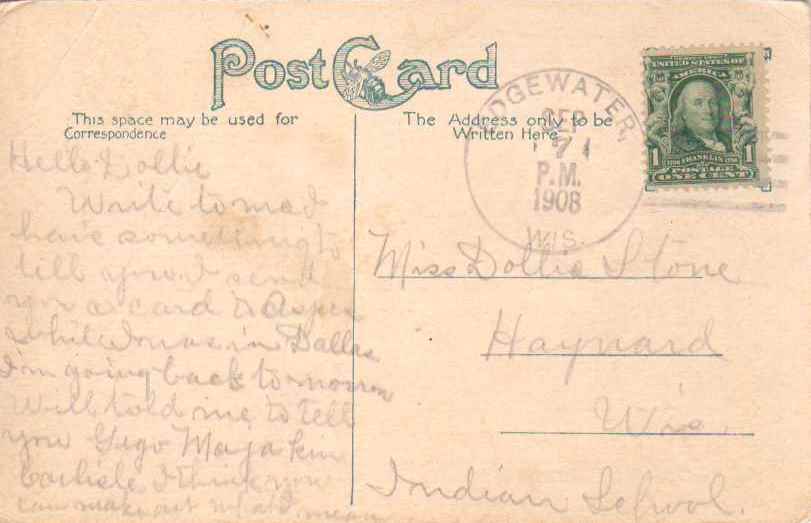 Post Card
This space may be used for
Correspondence
The Address only to be
Written Here
EDGEWATER,
SEP
7
P.M.
1908
WIS.
UNITED STATES OF
AMERICA
1 FRANKLIN 1
POSTAGE
ONE CENT
Hello Dollie
Write to me I
have something to
tell you I send
you a card to
while I was in Dallas
I'm going back tomorrow
Will told me to tell
you
Carlisle I think you
can make out what I mean
Miss Dollie Stone
Hayward
Wis.
Indian School.